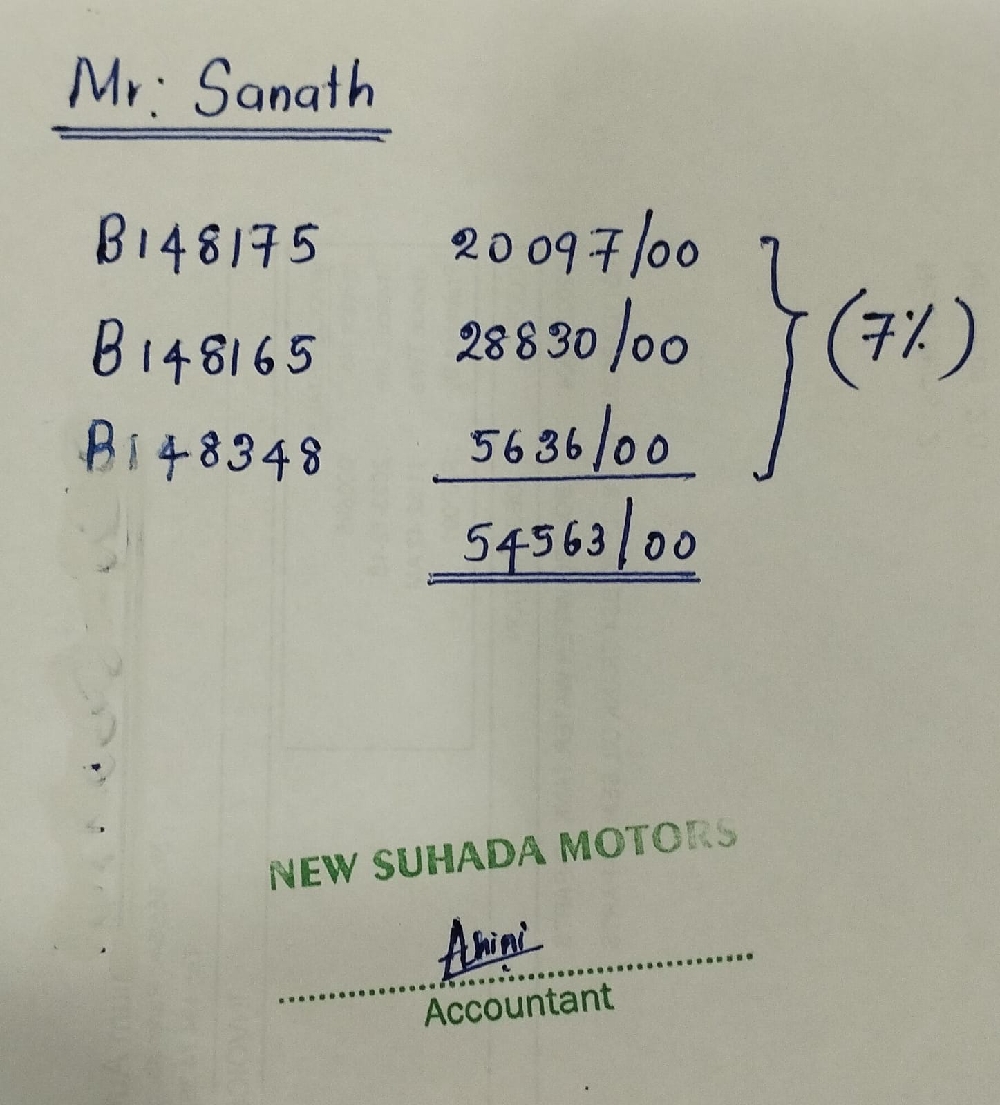 Mr: Sanath
B148175 20097/00
B148165 28830/00 (7%)
B148348 5636/00
54563/00
NEW SUHADA MOTORS
Accountant